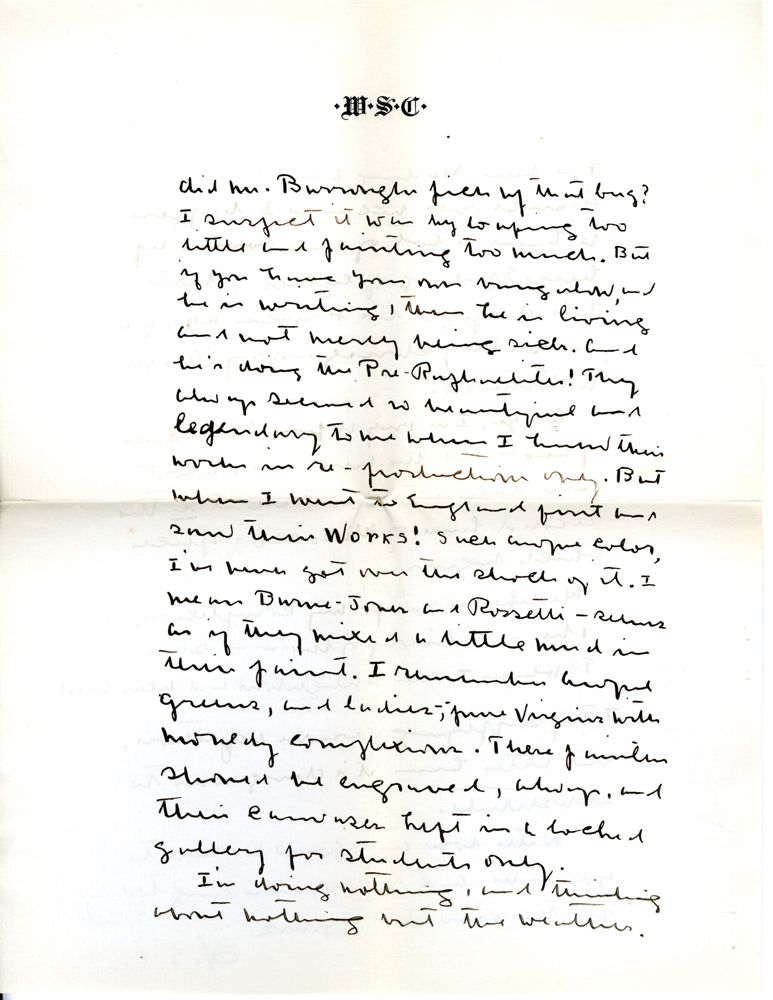 ·W·S·C·
did Mr. Burroughs pick up that bug?
I suspect it was by loafing too
little and painting too much. But
if you have your own bungalow, and
he is writing, then he is living
and not merely being sick. And
he's doing the Pre-Raphaelites! They
always seemed so beautiful and
legendary to me when I knew their
works in re-productions only. But
when I went to England first and
saw their Works! Such awful color,
I've never got over the shock of it. I
mean Burne-Jones and Rossetti – seems
as if they mixed a little mud in
their paint. I remember awful
greens, and ladies, pure Virgins with
complexions. These painters
should be engraved, always, and
their canvases kept in a locked
gallery for students only.
I'm doing nothing, and thinking
about nothing but the weather.